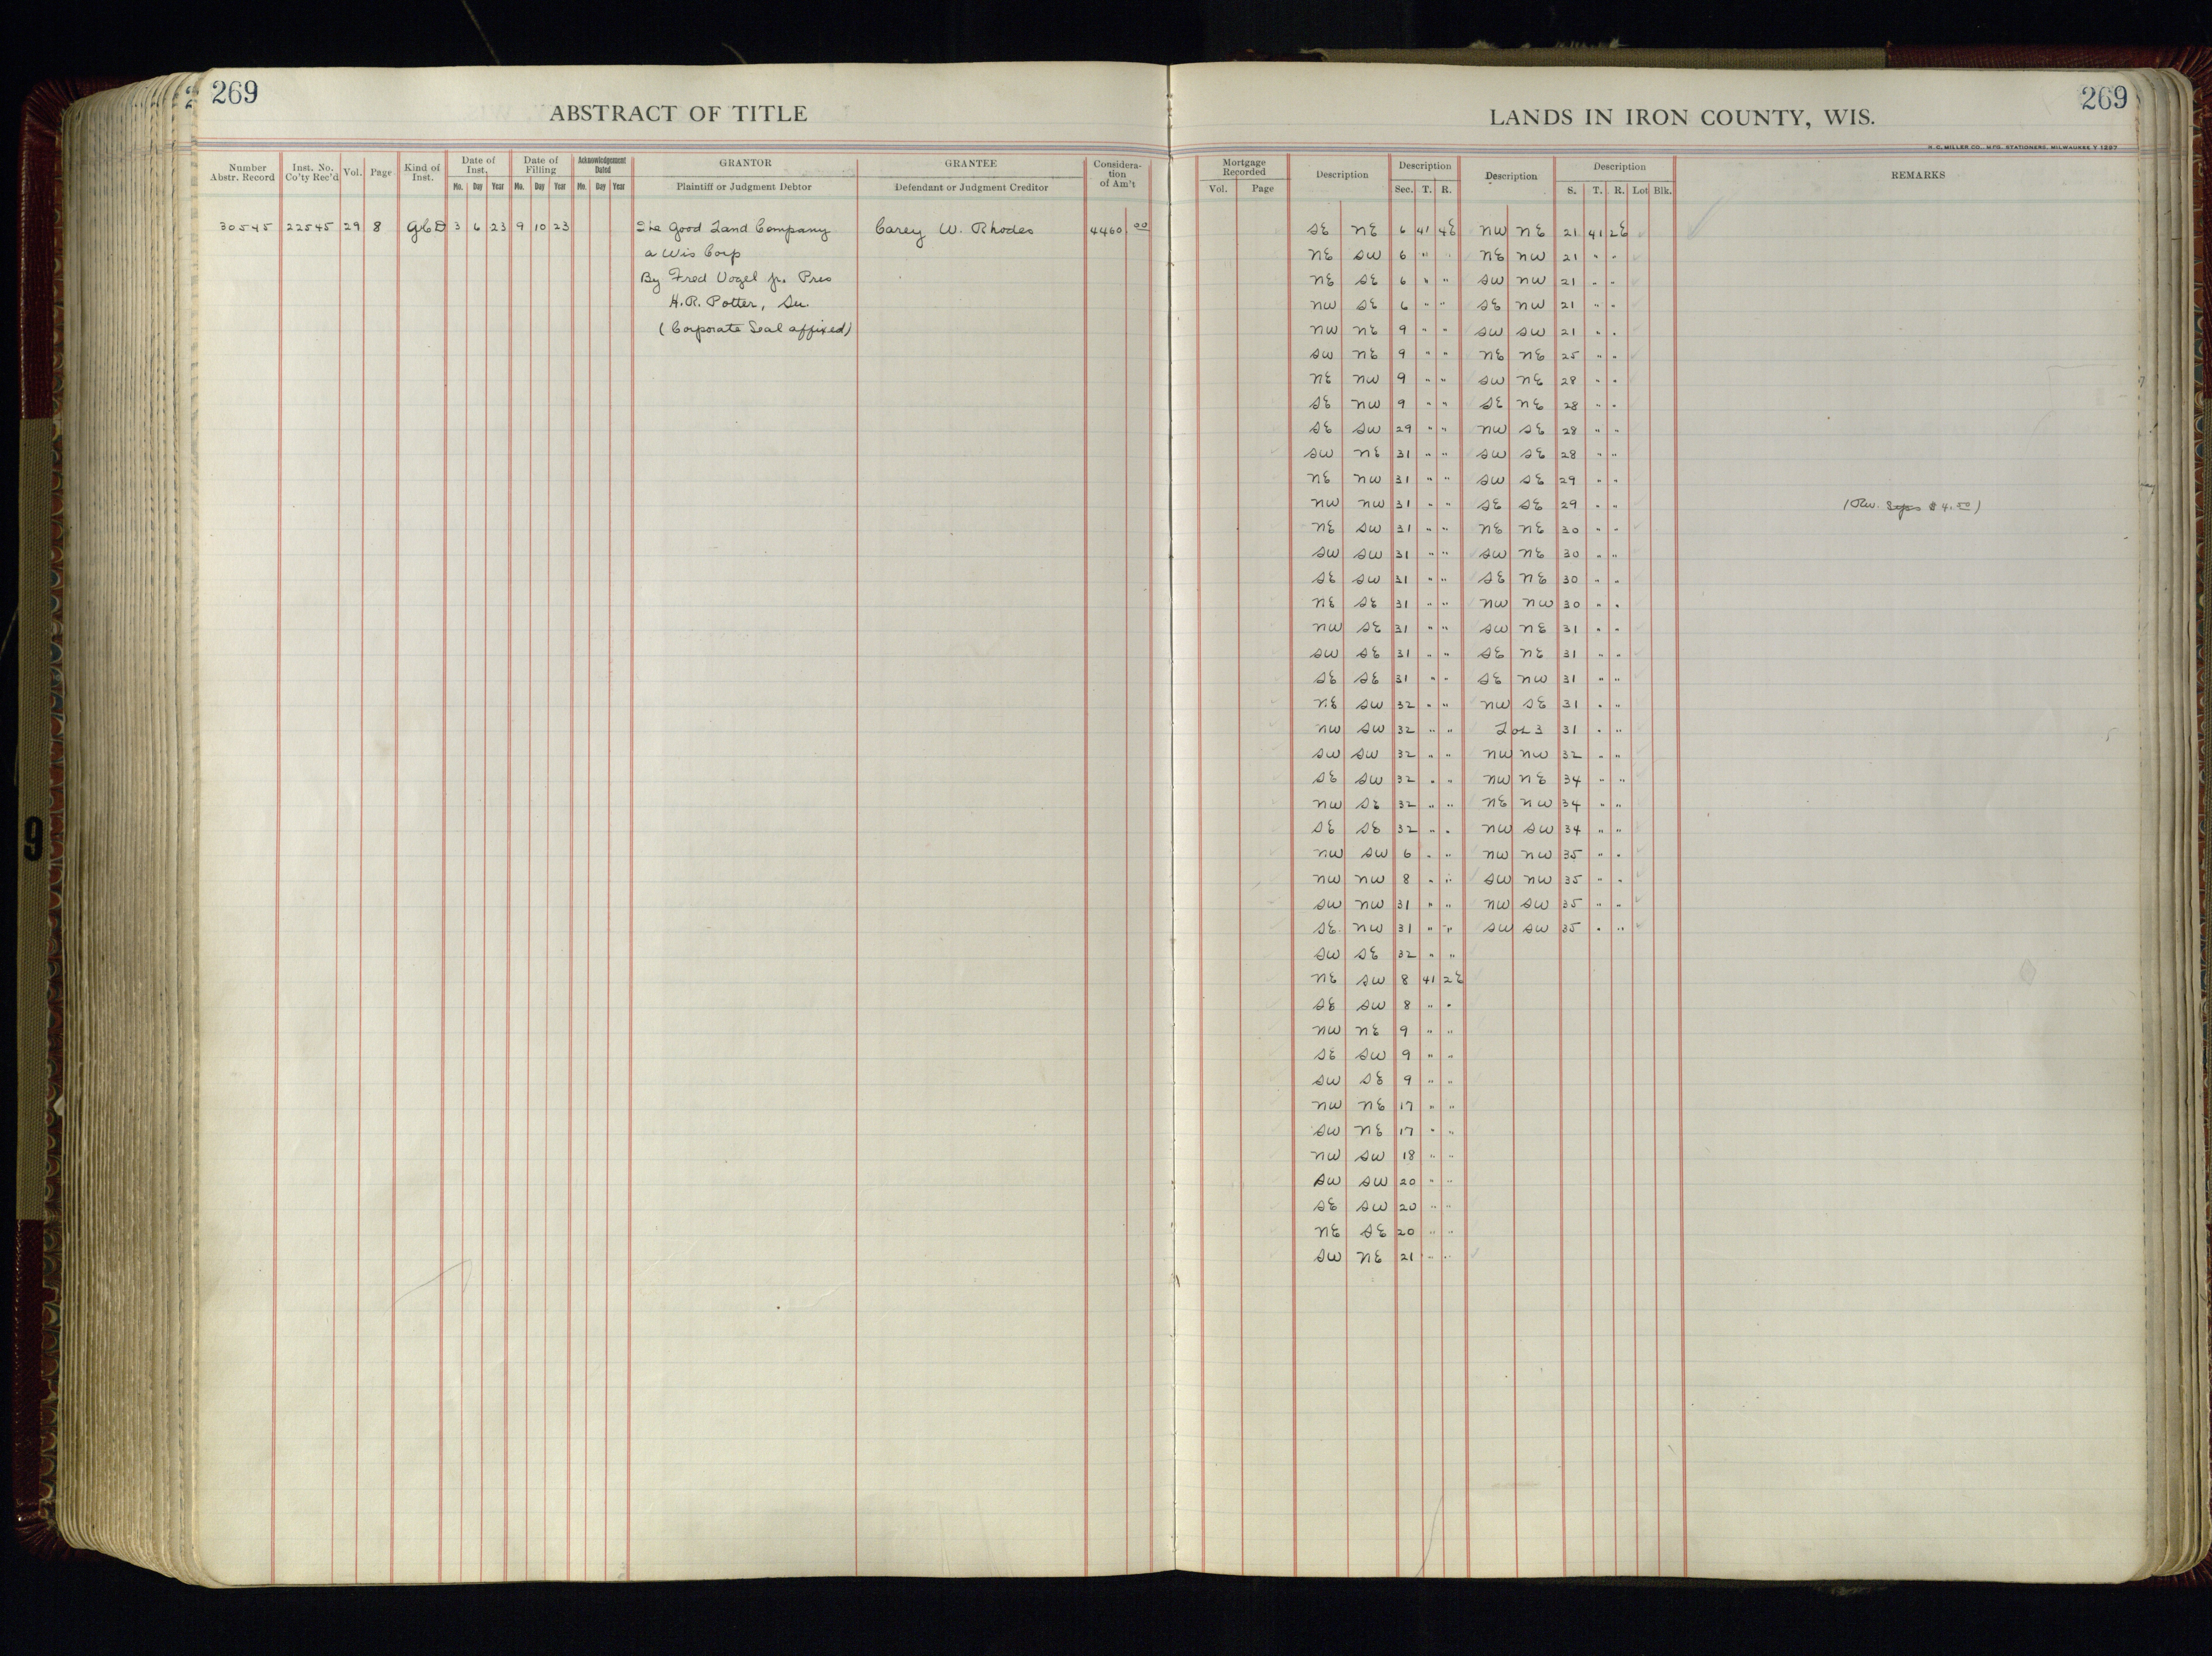 269
ABSTRACT OF TITLE
LANDS IN IRON COUNTY, WIS.
269
H. C. MILLER CO., MFG. STATIONERS, MILWAUKEE
Number Abstr. Record | Inst. No. Co'ty Rec'd | Vol. | Page | Kind of Inst. | Date of Inst. Mo. Day Year | Date of Filling Mo. Day Year | Acknowledgement Dated Mo. Day Year | GRANTOR Plaintiff or Judgment Debtor | GRANTEE Defendant or Judgment Creditor | Consideration of Am't
Mortgage Recorded Vol. Page | Description | Description Sec. T. R. | Description | Description S. T. R. Lot Blk. | REMARKS
30545 22545 29 8 3 6 23 9 10 23 The Good Land Company Carey W. Rhodes 4460 00
a Wis Corp
By Fred Vogel Jr. Pres
H.R. Potter, Sec.
(Corporate Seal affixed)
SE NE 6 41 4E NW NE 21 41 2E
NE SW 6 " " NE NW 21 " "
NE SE 6 " " SW NW 21 " "
NW SE 6 " " SE NW 21 " "
NW NE 9 " " SW SW 21 " "
SW NE 9 " " NE NE 25 " "
NE NW 9 " " SW NE 28 " "
SE NW 9 " " SE NE 28 " "
SE SW 29 " " NW SE 28 " "
SW NE 31 " " SW SE 28 " "
NE NW 31 " " SW SE 29 " "
NW NW 31 " " SE SE 29 " " (Rev. $4.50)
NE SW 31 " " NE NE 30 " "
SW SW 31 " " SW NE 30 " "
SE SW 31 " " SE NE 30 " "
NE SE 31 " " NW NW 30 " "
NW SE 31 " " SW NE 31 " "
SW SE 31 " " SE NE 31 " "
SE SE 31 " " SE NW 31 " "
NE SW 32 " " NW SE 31 " "
NW SW 32 " " Lot 3 31 " "
SW SW 32 " " NW NW 32 " "
SE SW 32 " " NW NE 34 " "
NW SE 32 " " NE NW 34 " "
SE SE 32 " " NW SW 34 " "
NW SW 6 " " NW NW 35 " "
NW NW 8 " " SW NW 35 " "
SW NW 31 " " NW SW 35 " "
SE NW 31 " " SW SW 35 " "
SW SE 32 " "
NE SW 8 41 2E
SE SW 8 " "
NW NE 9 " "
SE SW 9 " "
SW SE 9 " "
NW NE 17 " "
SW NE 17 " "
NW SW 18 " "
SW SW 20 " "
SE SW 20 " "
NE SE 20 " "
SW NE 21 " "
9